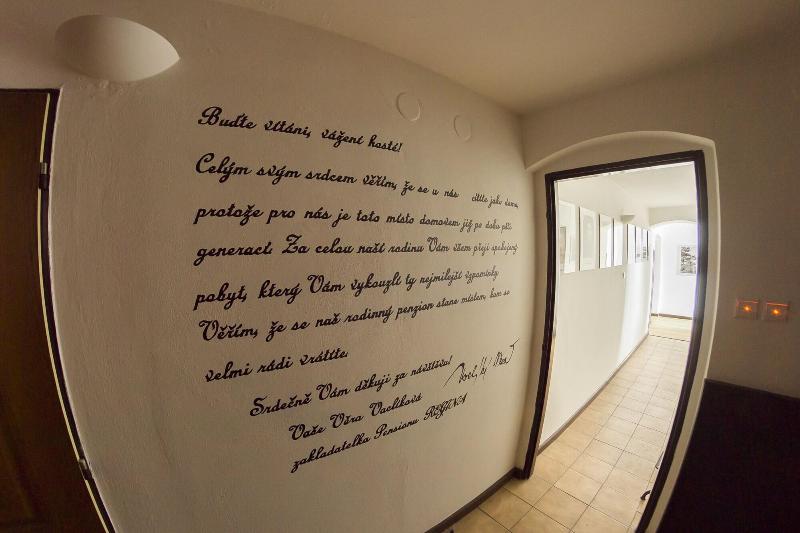 Buďte vítáni, vážení hosté!
Celým svým srdcem věřím, že se u nás cítíte jako doma,
protože pro nás je toto místo domovem již po dobu pěti
generací. Za celou naší rodinu Vám všem přeji spokojený
pobyt, který Vám vykouzlí ty nejmilejší vzpomínky
Věřím, že se náš rodinný penzion stane místem, kam se
velmi rádi vrátíte.
Srdečně Vám děkuji za návštěvu!
Vaše Věra Vaclíková
zakladatelka Pensionu REGINA